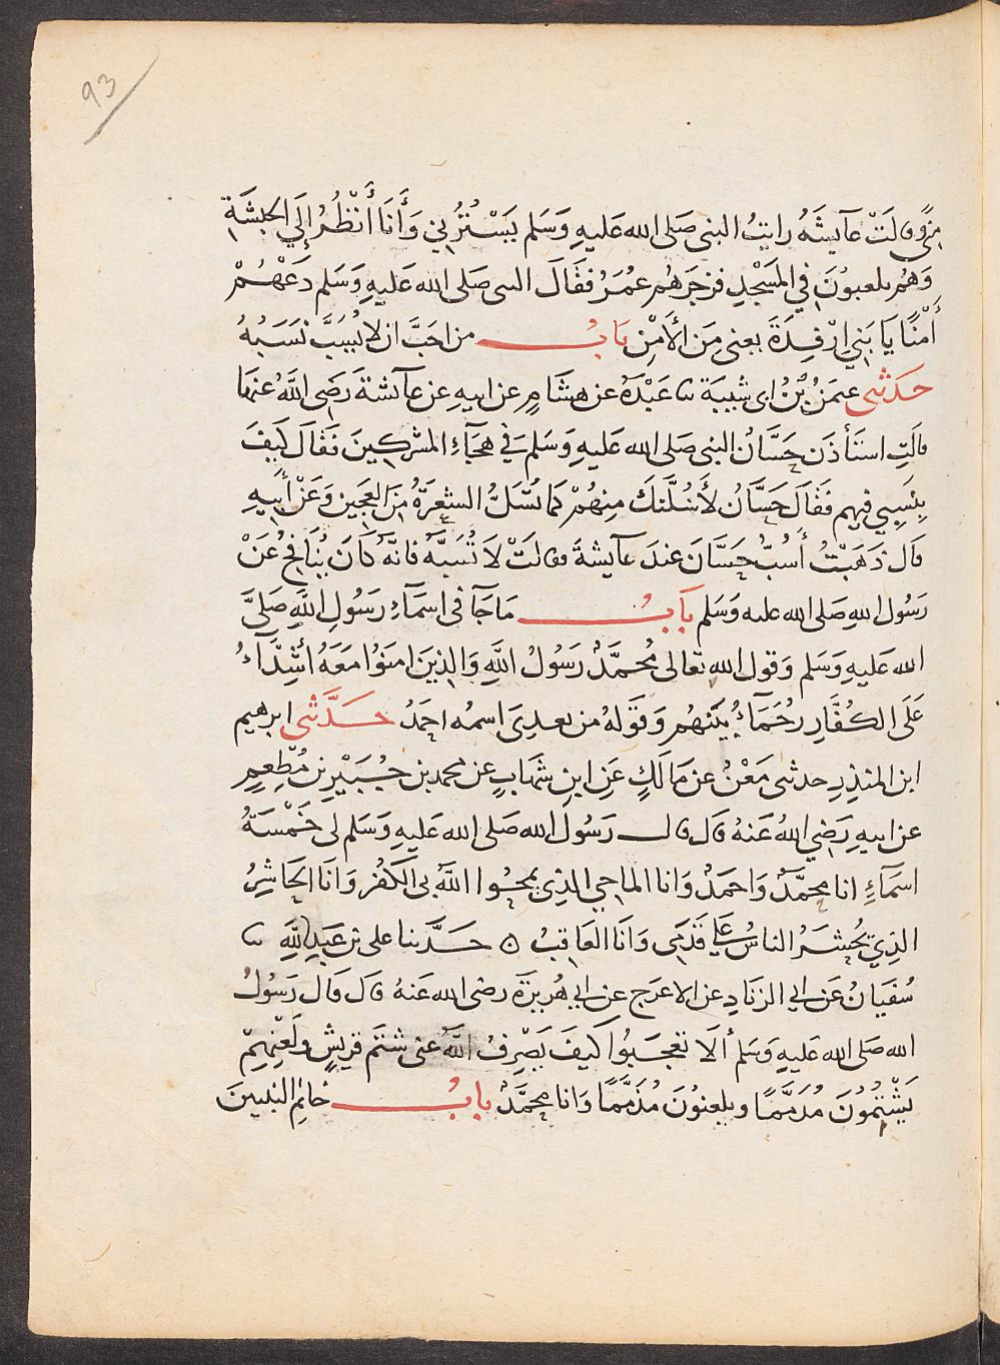 93
مِنًى وقالَتْ عآيشَهُ رايتُ النبى صَلى الله عَليهِ وَسَلم يَسْتُرُنِي وَأَنَا أَنْظُرُ إِلَي الحبشَةِ
وَهُم يلعبوُنَ فِي المَسْجِدِ فزجَرهُم عمُرَ فقَالَ النبى صَلى الله عَليهِ وَسَلم دَعْهُمْ
أَمْنًا يَا بَنِي ارْفِدَةَ يعنى مِنَ الأَمنِ بَابُ من احَبَّ ان لا يُسَبَّ نَسَبُهُ
حَدَثنى عثمنُ بْنُ ابى شيبَة نا عَبْدَةُ عن هشَامٍ عن ابيهِ عن عآئشةَ رَضِى اللَّهُ عنهَا
قالَتِ استَأذَن حَسَّانُ النبى صَلى الله عَليهِ وَسَلم فِي هجَآءِ المشركينَ فقَالَ كَيفَ
بِنَسِبِي فيهم فقَالَ حَسَّانُ لأَسُلَّنكَ مِنهُمْ كمَا تُسَلُّ الشعرَةُ مِنَ العَجِين وَعَنْ أَبِيهِ
قَال ذَهَبْتُ أَسُبُّ حَسَّانَ عندَ عآيشةَ فقالَتْ لاَ تُسبَّهُ فانَّهُ كَانَ يُنَافِحُ عَنْ
رَسُول اللهِ صَلى الله عليه وَسَلم بَابُ مَا جَآ فى اسمَآءِ رَسُولِ اللَّهِ صَلىَّ
الله عَليهِ وَسَلم وَقول الله تعَالى مُحمَّدٌ رَسُولُ اللَّهِ وَالذِينَ امنوُا مَعَهُ أشِدَّآءُ
عَلَى الكُفَّارِ رحُمَآءُ بَينَهُم وَقَولهُ من بعدِىَ اسمُه احمَدُ حَدَّثنى ابرهيم
ابن المنذِرِ حدثنى مَعْنُ عن مَالكٍ عَنِ ابنِ شهَابٍ عن محمد بن جُبَيْرِ بن مُطْعِمٍ
عن ابيهِ رَضِي اللهُ عَنهُ قال قال رَسُولُ الله صَلى الله عَليهِ وَسَلم لى خَمْسَةُ
اسمَآءٍ انا محمَّدٌ وَاحمَدُ وَانا الماحِي الذِى يمحُوا اللَّهُ بى الكفُر وَانَا الحَاشِرُ
الذِي يُحشَرُ الناسُ عَلَي قَدَمى وَانَا العَاقبُ ه حَدَّثنا على بن عَبدِ اللَّهِ نا
سُفيَانُ عَن ابي الزنَادِ عن الاعرَج عن ابي هُريرَة رضى الله عَنهُ قال قَال رَسُولُ
الله صَلى الله عَليهِ وَسَلم ألَا تعجَبُوا كَيفَ يَصْرِفُ اللَّهُ عنى شتَم قريشٍ وَلَعْنِهِمْ
يَشْتِمُونَ مُذَمَّمًا ويلعنوُنَ مُذَمَّمًا وَانا محمَّدٌ بابُ خاتم النبيينَ